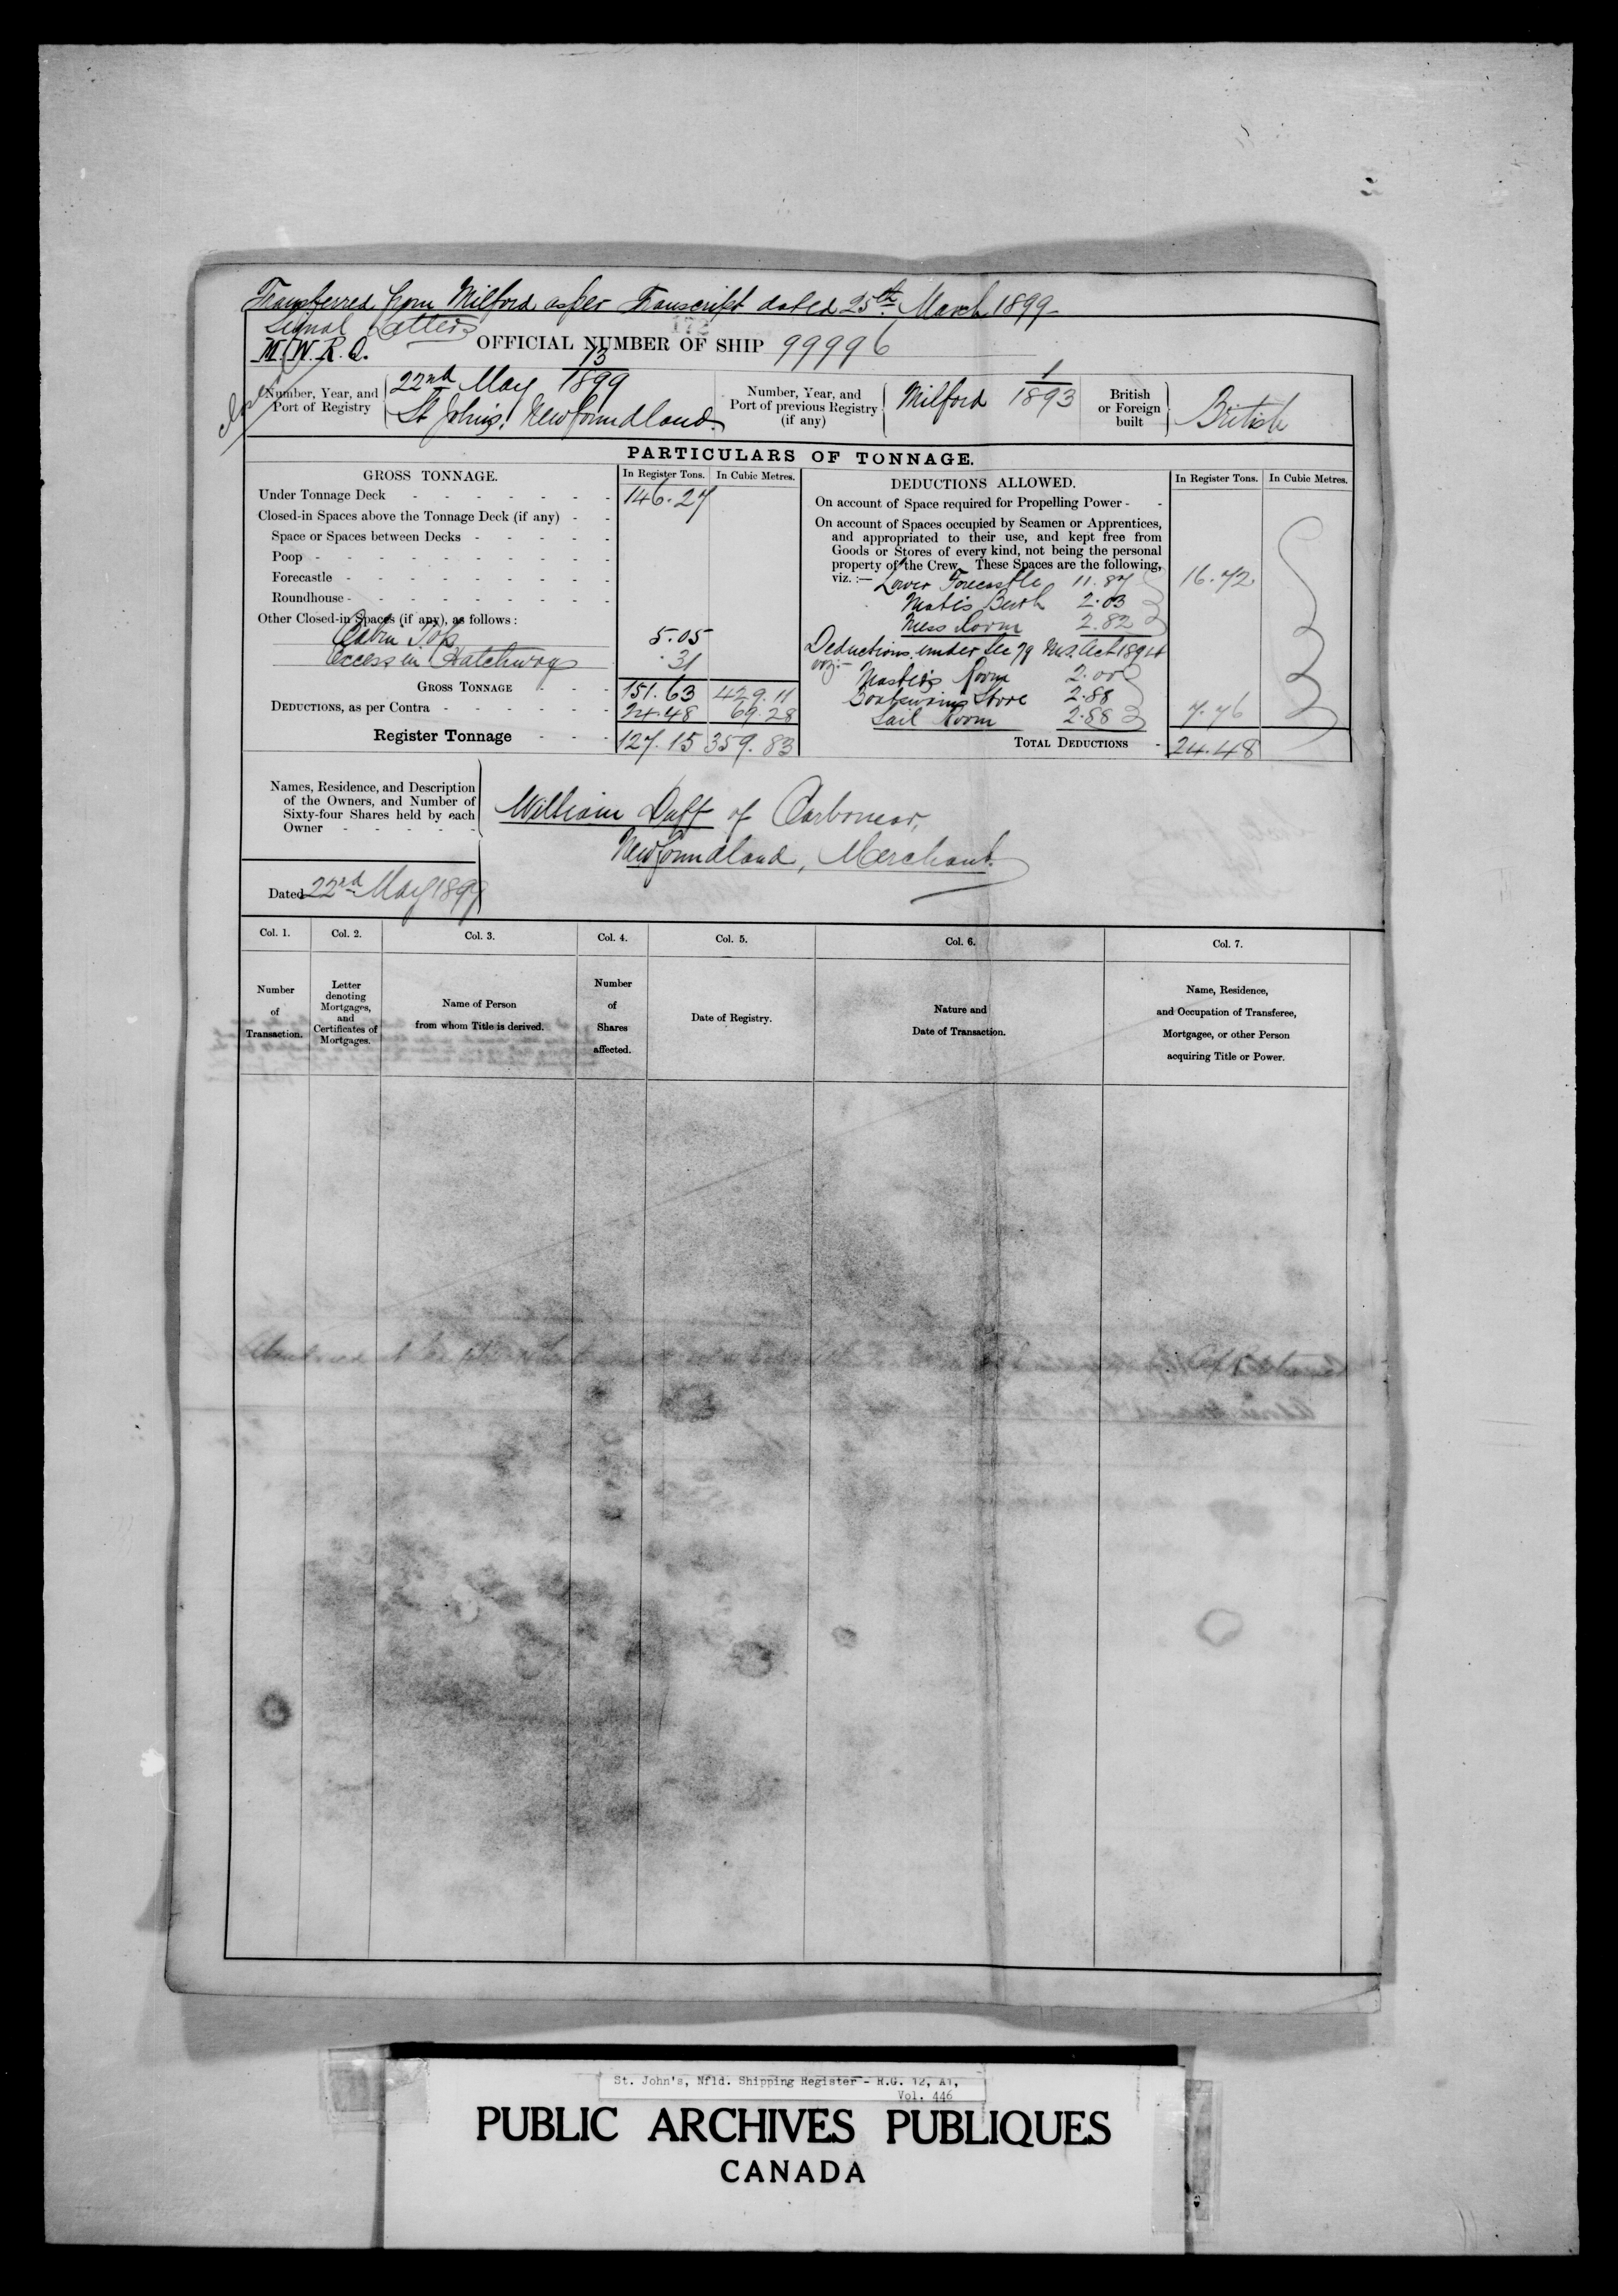 Transferred from Milford as per Transcript dated 25th March 1899
Signal Letters
172
M.W.R.Q.
OFFICIAL NUMBER OF SHIP 99996
Number, Year, and Port of Registry
13
22nd May 1899
St Johns, Newfoundland.
Number, Year, and Port of previous Registry (if any)
Milford 1/1893
British or Foreign built
British
PARTICULARS OF TONNAGE.
GROSS TONNAGE.
In Register Tons.
In Cubic Metres.
Under Tonnage Deck - - - - - - - 146.27
Closed-in Spaces above the Tonnage Deck (if any) - -
Space or Spaces between Decks - - - - -
Poop - - - - - - - - -
Forecastle - - - - - - - -
Roundhouse - - - - - - - -
Other Closed-in Spaces (if any), as follows :
Cabin Top 5.05
Excess in Hatchways .31
GROSS TONNAGE - - - 151.63 429.11
DEDUCTIONS, as per Contra - - - - - - 24.48 69.28
Register Tonnage - - - 127.15 359.83
DEDUCTIONS ALLOWED.
In Register Tons.
In Cubic Metres.
On account of Space required for Propelling Power - -
On account of Spaces occupied by Seamen or Apprentices,
and appropriated to their use, and kept free from
Goods or Stores of every kind, not being the personal
property of the Crew. These Spaces are the following,
viz. :— Lower Forecastle 11.87 16.72
Mate's Berth 2.03
Mess Room 2.82
Deductions under Sec 79 M.S. Act 1894
viz:-
Master's Room 2.00
Boatswains Store 2.88
Sail Room 2.88 7.76
TOTAL DEDUCTIONS - 24.48
Names, Residence, and Description
of the Owners, and Number of
Sixty-four Shares held by each
Owner - - - - -
William Duff of Carbonear,
Newfoundland, Merchant.
Dated 22nd May 1899
Col. 1.
Col. 2.
Col. 3.
Col. 4.
Col. 5.
Col. 6.
Col. 7.
Number
of
Transaction.
Letter
denoting
Mortgages,
and
Certificates of
Mortgages.
Name of Person
from whom Title is derived.
Number
of
Shares
affected.
Date of Registry.
Nature and
Date of Transaction.
Name, Residence,
and Occupation of Transferee,
Mortgagee, or other Person
acquiring Title or Power.
St. John's, Nfld. Shipping Register - R.G. 12, A1,
Vol. 446
PUBLIC ARCHIVES PUBLIQUES
CANADA